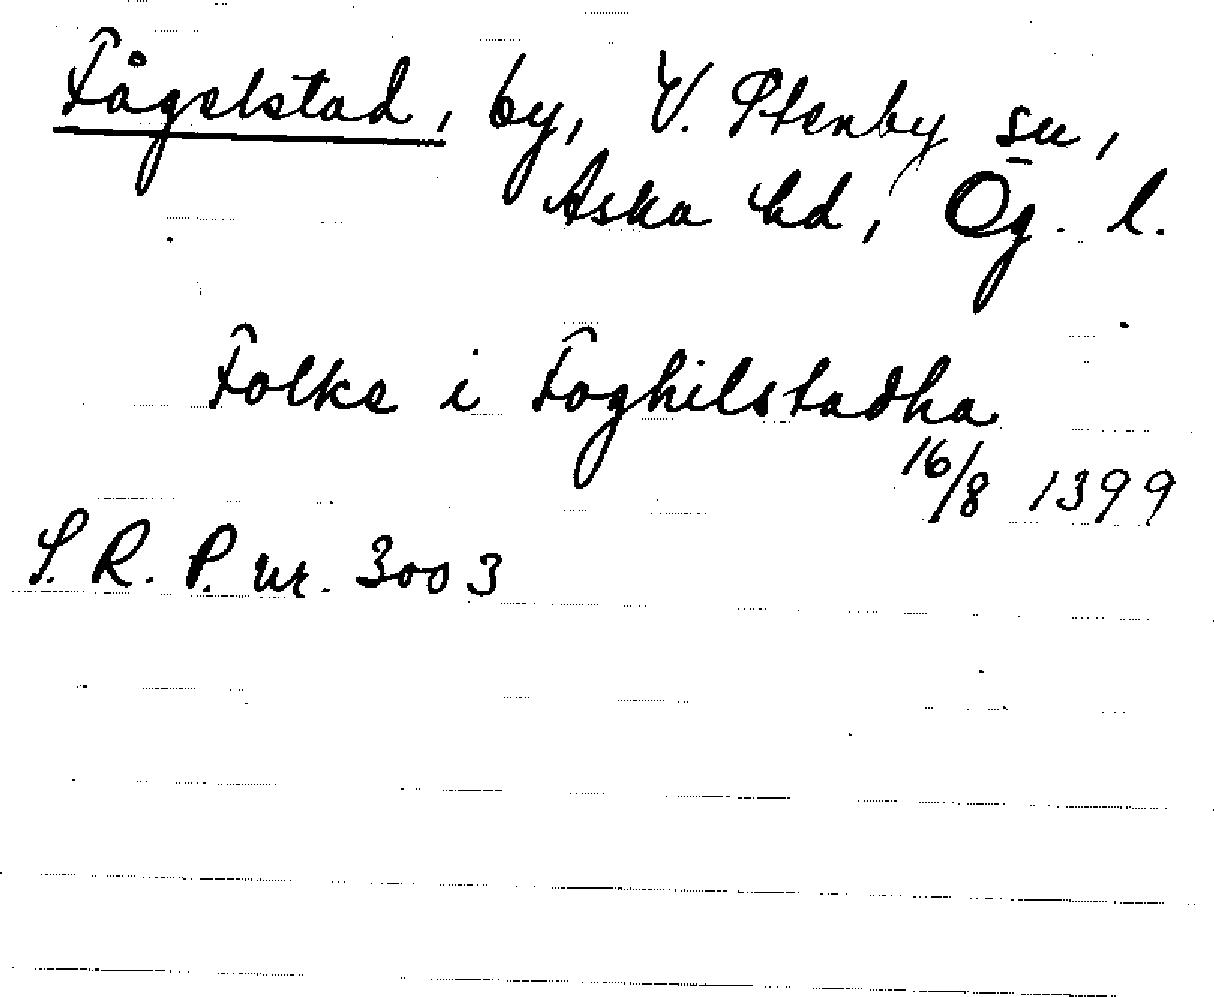 Fågelstad, by, V. Stenby sn,
Aska hd, Ög. l.
Folke i Foghilstadha
16/8 1399
S. R. P. nr. 3003